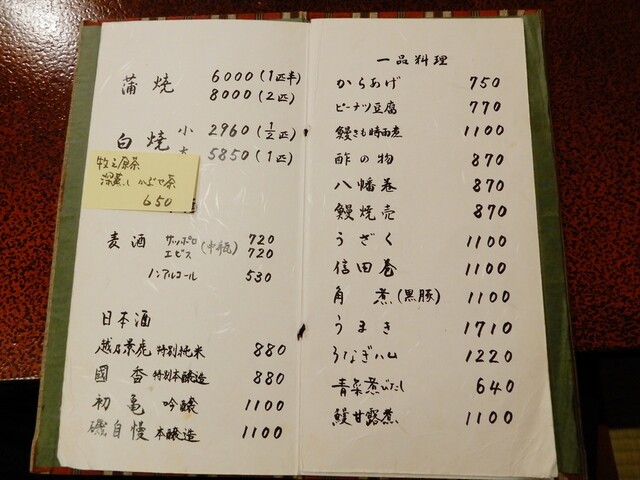 蒲焼 6000(1匹半)
8000(2匹)
白焼 小 2960(1/2匹)
5850(1匹)
牧之原茶
深蒸し かぶせ茶
650
麦酒 サッポロ (中瓶) 720
エビス 720
ノンアルコール 530
日本酒
越乃景虎 特別純米 880
國香 特別本醸造 880
初亀 吟醸 1100
磯自慢 本醸造 1100
一品料理
からあげ 750
ピーナツ豆腐 770
鰻きも時雨煮 1100
酢の物 870
八幡巻 870
鰻焼売 870
うざく 1100
信田巻 1100
角煮(黒豚) 1100
うまき 1710
うなぎハム 1220
青菜煮びたし 640
鰻甘露煮 1100